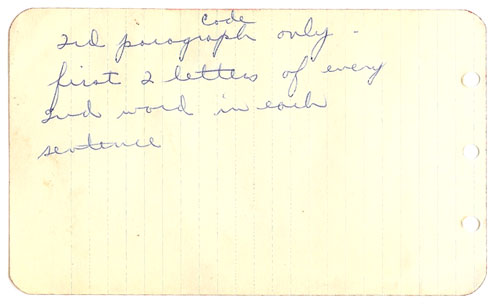 code
2nd paragraph only -
first 2 letters of every
2nd word in each
sentence